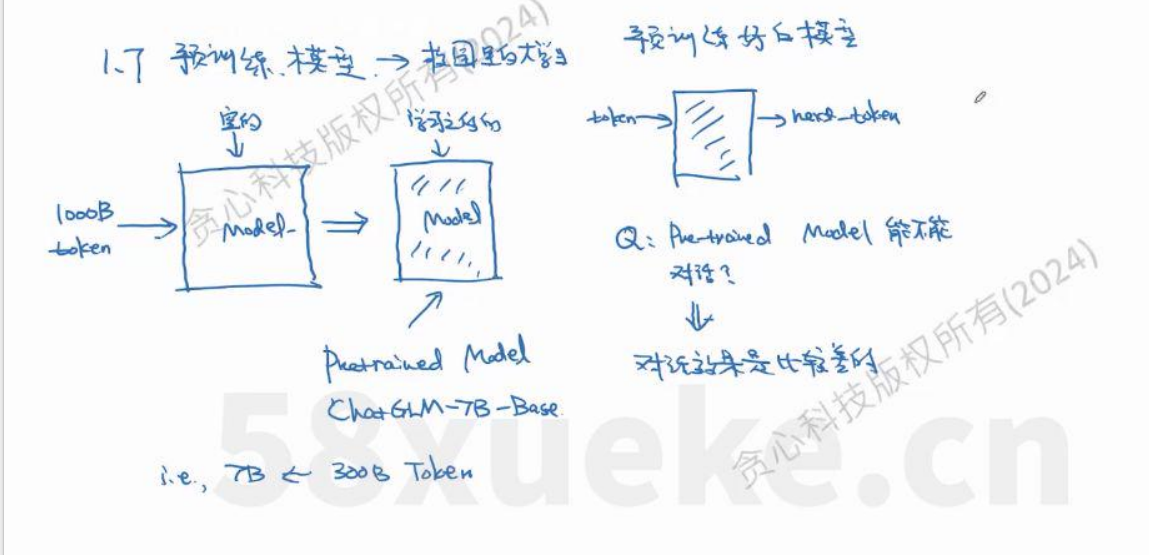 1.7 预训练模型 → 校园里的大学生
空的
学习之后的
1000B
token
Model
⇒
Model
Pretrained Model
ChatGLM-7B-Base
i.e., 7B ← 300B Token
预训练好的模型
token → → next-token
Q: Pre-trained Model 能不能
对话?
对话效果是比较差的
贪心科技版权所有(2024)
贪心科技版权所有(2024)
58xueke.cn